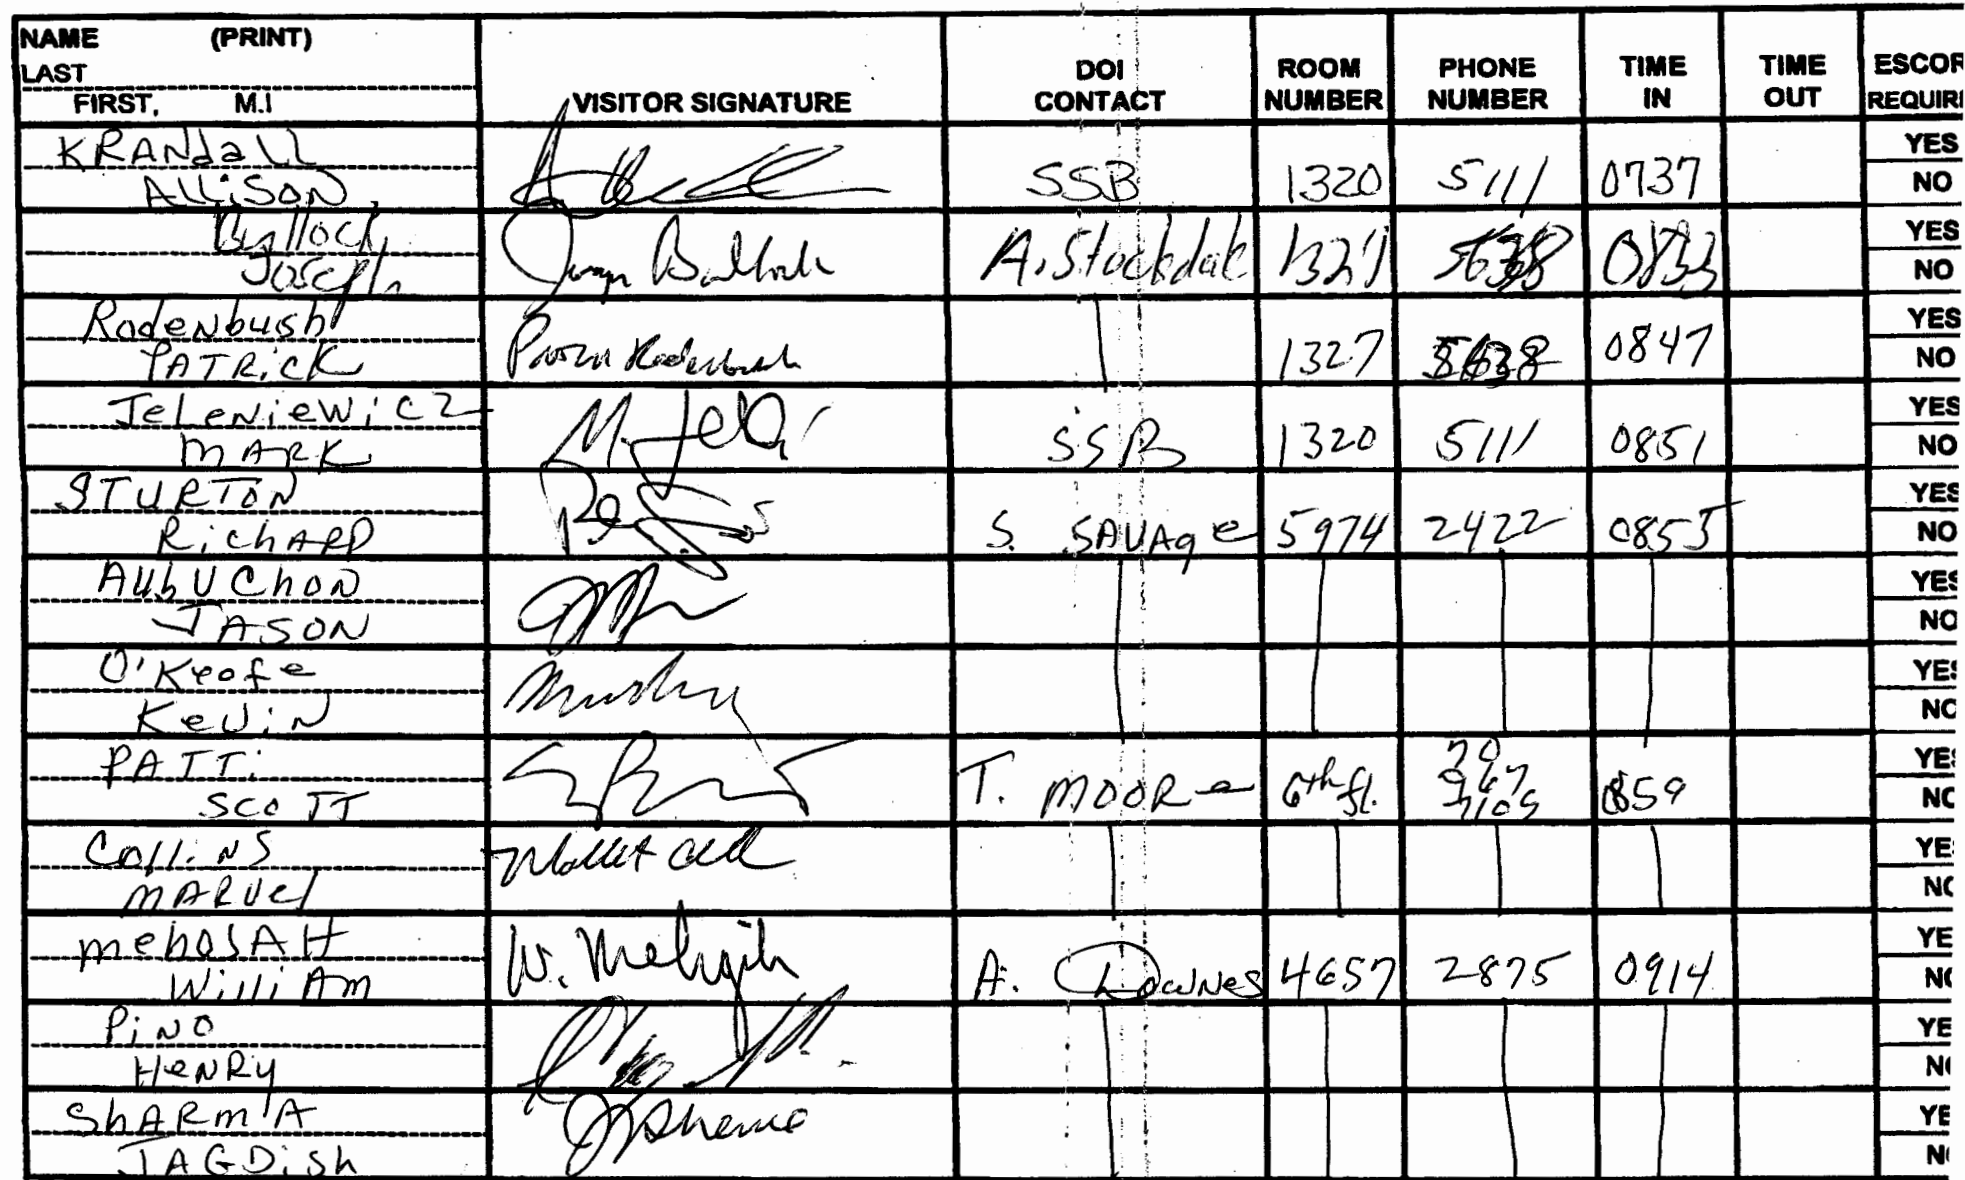 NAME (PRINT)
LAST
FIRST, M.I
VISITOR SIGNATURE
DOI
CONTACT
ROOM
NUMBER
PHONE
NUMBER
TIME
IN
TIME
OUT
ESCOR
REQUIRI
KRANdaLL
ALLiSON
SSB 1320 5111 0737
YES
NO
Bullock
Joseph
A. Stockdale 1327 5638 0833
YES
NO
RodeNbush
PATRiCK
1327 5638 0847
YES
NO
JeLeNiewicz
MARK
M. Jel
SSB 1320 5111 0851
YES
NO
STURTON
RichARD
S. SAVAge 5974 2422 0855
YES
NO
AUbUChON
JASON
YES
NO
O'Keofe
KeViN
YES
NO
PATTi
SCOTT
T. MOORe 6th fl. 70 967 7109 0859
YES
NO
COlliNS
MARVel
YE
NO
mehOJAH
WilliAm
W. Mehojah
A. DowNes 4657 2875 0914
YE
NO
PiNO
HeNRy
YE
NO
ShARmA
JAGDiSh
J Sharma
YE
NO